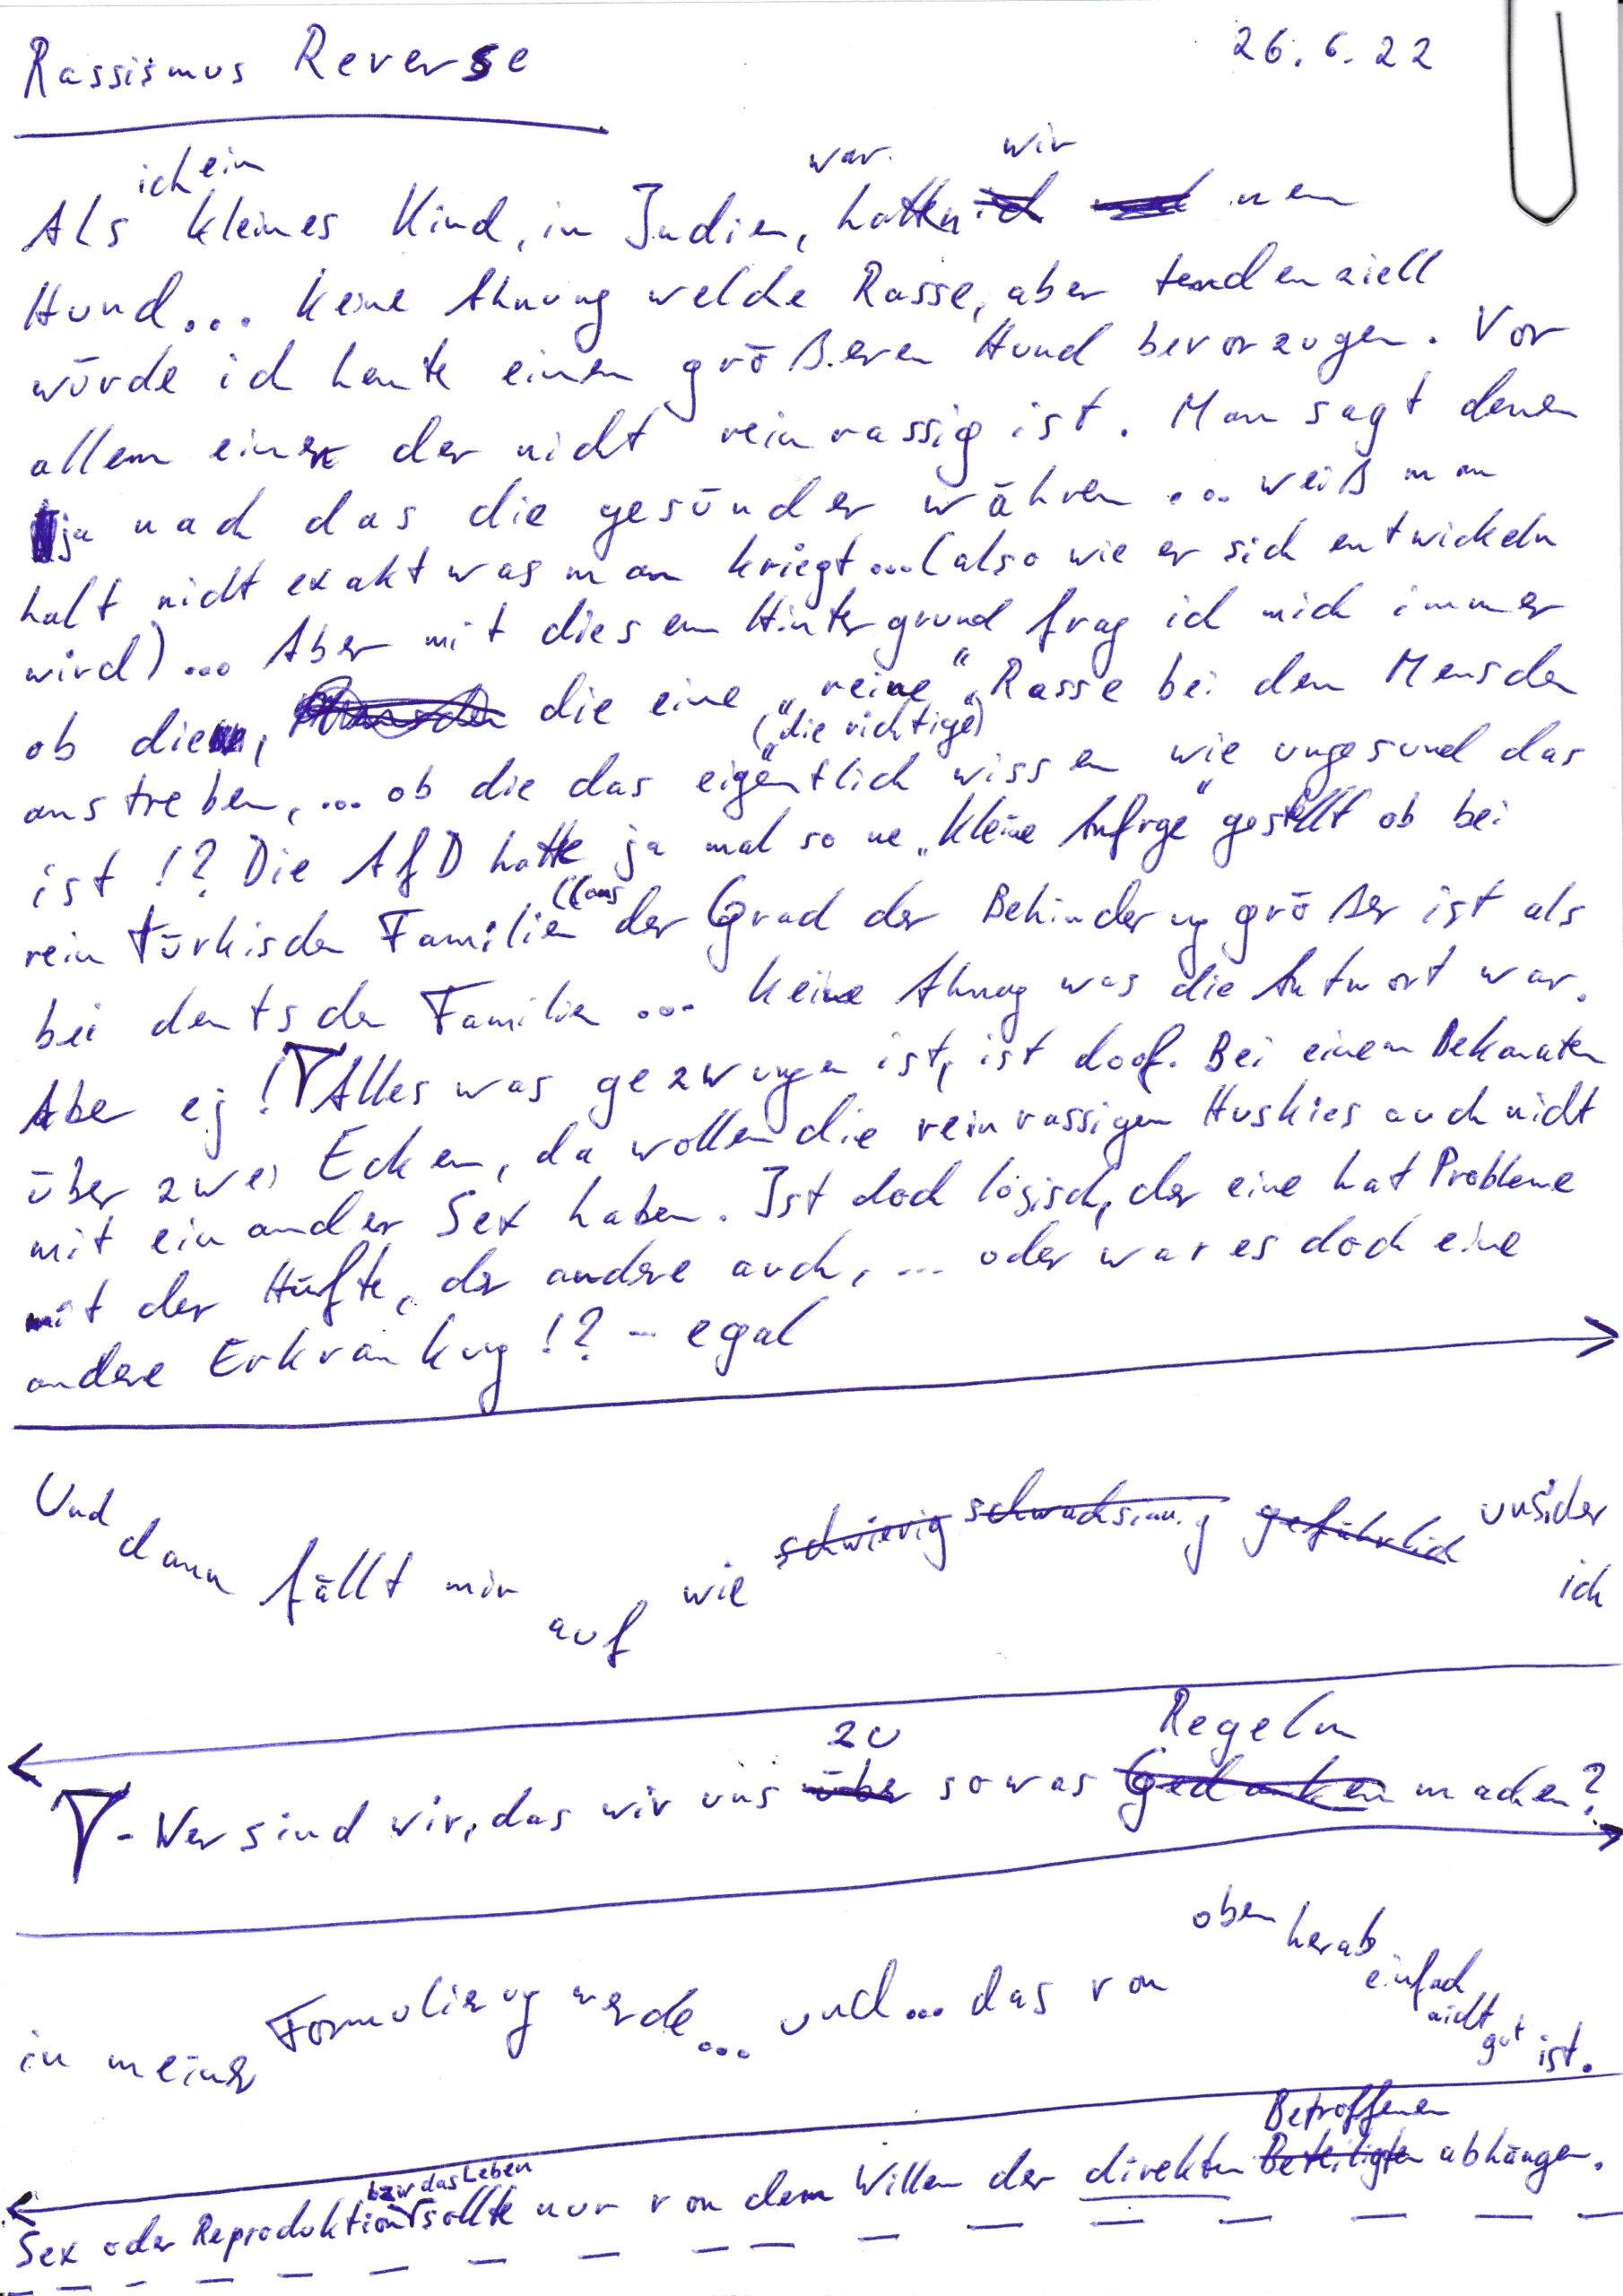 Rassismus Reverse 26.6.22
ich ein war wir
Als kleines Kind, in Indien, hatten ich nen
Hund... Keine Ahnung welche Rasse, aber tendenziell
würde ich heute einen größeren Hund bevorzugen. Vor
allem einer der nicht reinrassig ist. Man sagt denen
ja nach das die gesünder währen ... weiß man
halt nicht exakt was man kriegt...(also wie er sich entwickeln
wird)... Aber mit diesem Hintergrund frag ich mich immer
ob die, Menschen die eine „reine" Rasse bei den Menschen
("die richtige")
anstreben, ... ob die das eigentlich wissen wie ungesund das
ist !? Die AfD hatte ja mal so ne „Kleine Anfrge" gestellt ob bei
rein türkischen Familien ((aus der Grad der Behinderung größer ist als
bei deutschen Familien ... keine Ahnung was die Antwort war.
Aber ej! Alles was gezwungen ist, ist doof. Bei einem Bekannten
über zwei Ecken, da wollen die reinrassigen Huskies auch nicht
mit einander Sex haben. Ist doch logisch, der eine hat Probleme
mit der Hüfte, der andere auch, ... oder war es doch eine
andere Erkrankung !? - egal
Und dann fällt mir auf wie schwierig schwachsinnig gefährlich unsicher
ich
zu Regeln
- Wer sind wir, das wir uns über sowas Gedanken machen?
in meiner Formulierung werde... und... das von oben herab einfach nicht gut ist.
Betroffenen
bzw das Leben
Sex oder Reproduktion sollte nur von dem Willen der direkten Beteiligten abhängen.